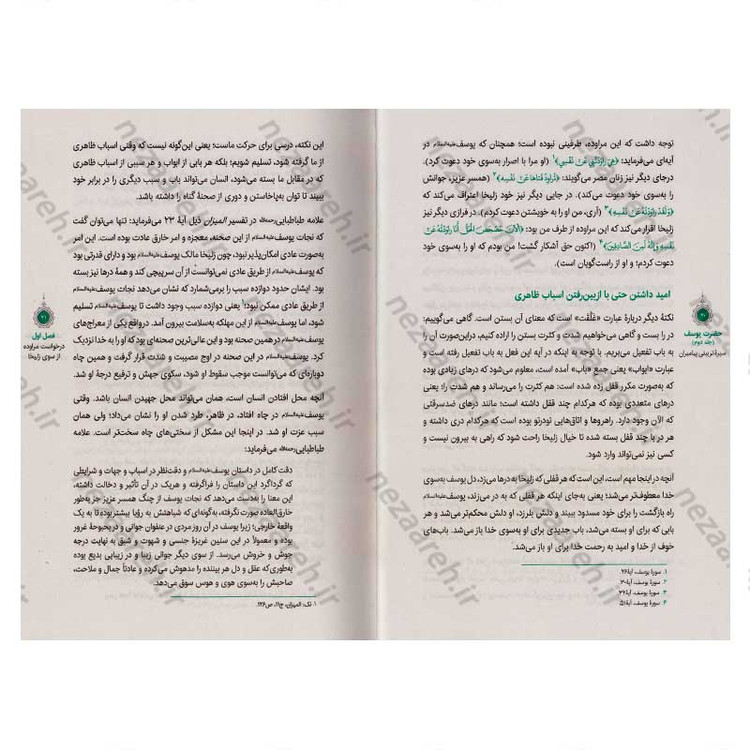 توجه داشت که این مراوده، طرفینی نبوده است؛ همچنان که یوسف علیه‌السلام در
آیه‌ای می‌فرماید: ﴿هِيَ رَاوَدَتْنِي عَنْ نَفْسِي﴾۱ (او مرا با اصرار به‌سوی خود دعوت کرد).
درجای دیگر نیز زنان مصر می‌گویند: ﴿تُرَاوِدُ فَتَاهَا عَنْ نَفْسِهِ﴾۲ (همسر عزیز، جوانش
را به‌سوی خود دعوت می‌کند). در جایی دیگر نیز خود زلیخا اعتراف می‌کند که
﴿وَلَقَدْ رَاوَدْتُهُ عَنْ نَفْسِهِ﴾۳ (آری، من او را به خویشتن دعوت کردم). در فرازی دیگر نیز
زلیخا اقرار می‌کند که این مراوده از طرف من بود: ﴿الْآنَ حَصْحَصَ الْحَقُّ أَنَا رَاوَدْتُهُ عَنْ
نَفْسِهِ وَإِنَّهُ لَمِنَ الصَّادِقِينَ﴾۴ (اکنون حق آشکار گشت! من بودم که او را به‌سوی خود
دعوت کردم؛ و او از راست‌گویان است).
امید داشتن حتی با ازبین‌رفتن اسباب ظاهری
نکتهٔ دیگر دربارهٔ عبارت «غَلَّقَت» است که معنای آن بستن است. گاهی می‌گوییم:
در را بست و گاهی می‌خواهیم شدت و کثرت بستن را اراده کنیم، دراین‌صورت آن را
به باب تفعیل می‌بریم. با توجه به اینکه در آیه این فعل به باب تفعیل رفته است و
عبارت «ابواب» یعنی جمع «باب» آمده است، معلوم می‌شود که درهای زیادی بوده
که به‌صورت مکرر قفل زده شده است؛ هم کثرت را می‌رساند و هم شدت را؛ یعنی
درهای متعددی بوده که هرکدام چند قفل داشته است؛ مانند درهای ضدسرقتی
که الآن وجود دارد. راهروها و اتاق‌هایی تودرتو بوده است که هرکدام دری داشته و
هر در با چند قفل بسته شده تا خیال زلیخا راحت شود که راهی به بیرون نیست و
کسی نیز نمی‌تواند وارد شود.
آنچه در اینجا مهم است، این است که هر قفلی که زلیخا به درها می‌زد، دل یوسف به‌سوی
خدا معطوف‌تر می‌شد؛ یعنی به‌جای اینکه هر قفلی که به در می‌زند، یوسف علیه‌السلام
راه بازگشت را برای خود مسدود ببیند و دلش بلرزد، او دلش محکم‌تر می‌شد و هر
بابی که برای او بسته می‌شد، باب جدیدی برای او به‌سوی خدا باز می‌شد. باب‌های
خوف از خدا و امید به رحمت خدا برای او باز می‌شد.
۱. سورهٔ یوسف، آیهٔ۲۶.
۲. سورهٔ یوسف، آیهٔ۳۰.
۳. سورهٔ یوسف، آیهٔ۳۲.
۴. سورهٔ یوسف، آیهٔ۵۱.
۲۰
حضرت یوسف
(جلد دوم)
سیرهٔ تربیتی پیامبران
این نکته، درسی برای حرکت ماست؛ یعنی این‌گونه نیست که وقتی اسباب ظاهری
از ما گرفته شود، تسلیم شویم؛ بلکه هر بابی از ابواب و هر سببی از اسباب ظاهری
که در مقابل ما بسته می‌شود، انسان می‌تواند باب و سبب دیگری را در برابر خود
ببیند تا توان به‌پاخاستن و دوری از صحنهٔ گناه را داشته باشد.
علامه طباطبایی رحمه‌الله در تفسیر المیزان ذیل آیهٔ ۲۳ می‌فرماید: تنها می‌توان گفت
که نجات یوسف علیه‌السلام از این صحنه، معجزه و امر خارق عادت بوده است. این امر
به‌صورت عادی امکان‌پذیر نبود، چون زلیخا مالک یوسف علیه‌السلام بود و دارای قدرتی بود
که یوسف علیه‌السلام از طریق عادی نمی‌توانست از آن سرپیچی کند و همهٔ درها نیز بسته
بود. ایشان حدود دوازده سبب را برمی‌شمارد که نشان می‌دهد نجات یوسف علیه‌السلام
از طریق عادی ممکن نبود؛۱ یعنی دوازده سبب وجود داشت تا یوسف علیه‌السلام تسلیم
شود، اما یوسف علیه‌السلام از این مهلکه به‌سلامت بیرون آمد. درواقع یکی از معراج‌های
یوسف علیه‌السلام در همین صحنه بود و این عالی‌ترین صحنه‌ای بود که او را به خدا نزدیک
کرد. یوسف علیه‌السلام در این صحنه در اوج مصیبت و شدت قرار گرفت و همین چاه
دوباره‌ای که می‌توانست موجب سقوط او شود، سکوی جهش و ترفیع درجهٔ او شد.
آنچه محل افتادن انسان است، می‌تواند محل جهیدن انسان باشد. وقتی
یوسف علیه‌السلام در چاه افتاد، در ظاهر، طرد شدن او را نشان می‌داد؛ ولی همان
سبب عزت او شد. در اینجا این مشکل از سختی‌های چاه سخت‌تر است. علامه
طباطبایی رحمه‌الله می‌فرماید:
دقت کامل در داستان یوسف علیه‌السلام و دقت‌نظر در اسباب و جهات و شرایطی
که گرداگرد این داستان را فراگرفته و هریک در آن تأثیر و دخالت داشته،
این معنا را به‌دست می‌دهد که نجات یوسف از چنگ همسر عزیز جز به‌طور
خارق‌العاده صورت نگرفته، به‌گونه‌ای که شباهتش به رؤیا بیشتر بوده تا به یک
واقعهٔ خارجی؛ زیرا یوسف در آن روز مردی در عنفوان جوانی و در بحبوحهٔ غرور
بوده و معمولاً در این سنین غریزهٔ جنسی و شهوت و شبق به نهایت درجه
جوش و خروش می‌رسد. از سوی دیگر جوانی زیبا و در زیبایی بدیع بوده
به‌طوری‌که عقل و دل هر بیننده را مدهوش می‌کرده و عادتاً جمال و ملاحت،
صاحبش را به‌سوی هوی و هوس سوق می‌دهد.
۱. نک: المیزان، ج۱۱، ص۱۲۶.
۲۱
فصل اول
درخواست مراوده
از سوی زلیخا
nezaareh.ir